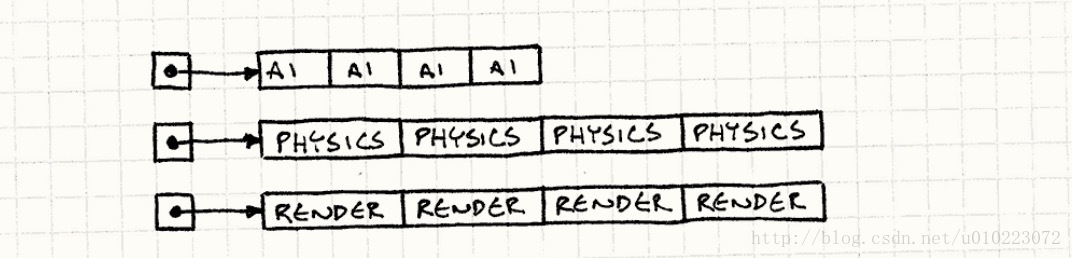 AI AI AI AI
PHYSICS PHYSICS PHYSICS PHYSICS
RENDER RENDER RENDER RENDER
http://blog.csdn.net/u010223072